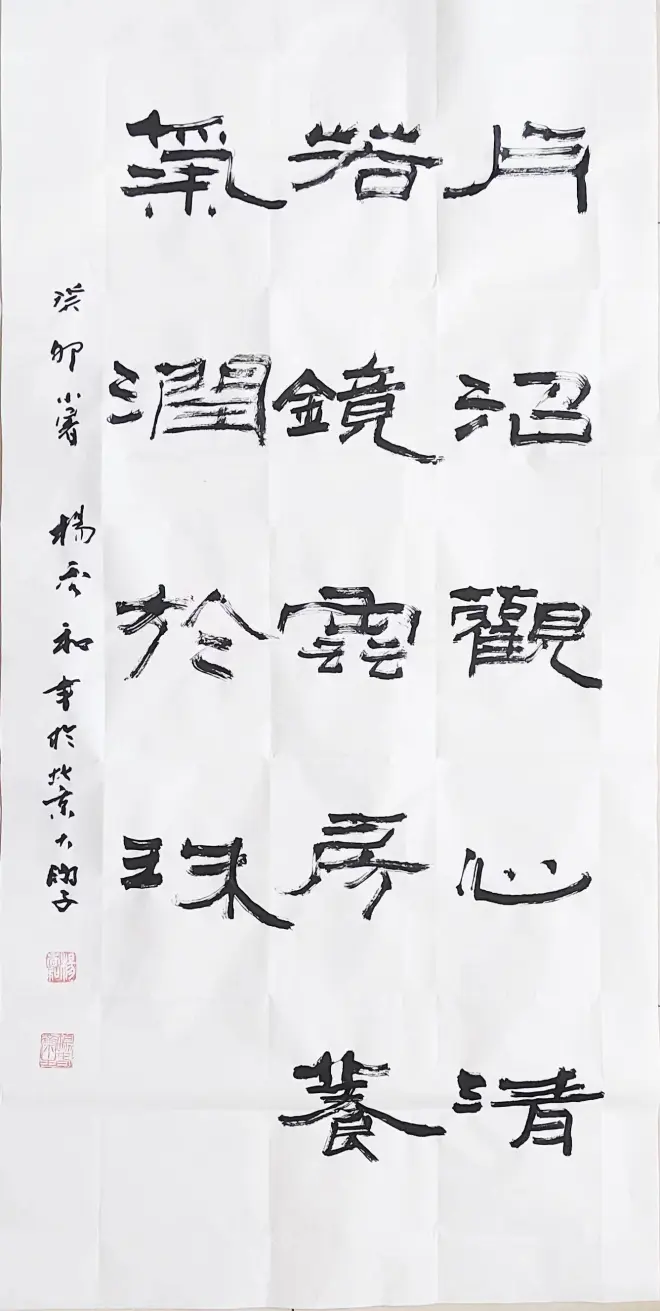 月沼觀心清
若鏡雲房養
氣潤於珠
癸卯小暑 楊 和書於北京大學